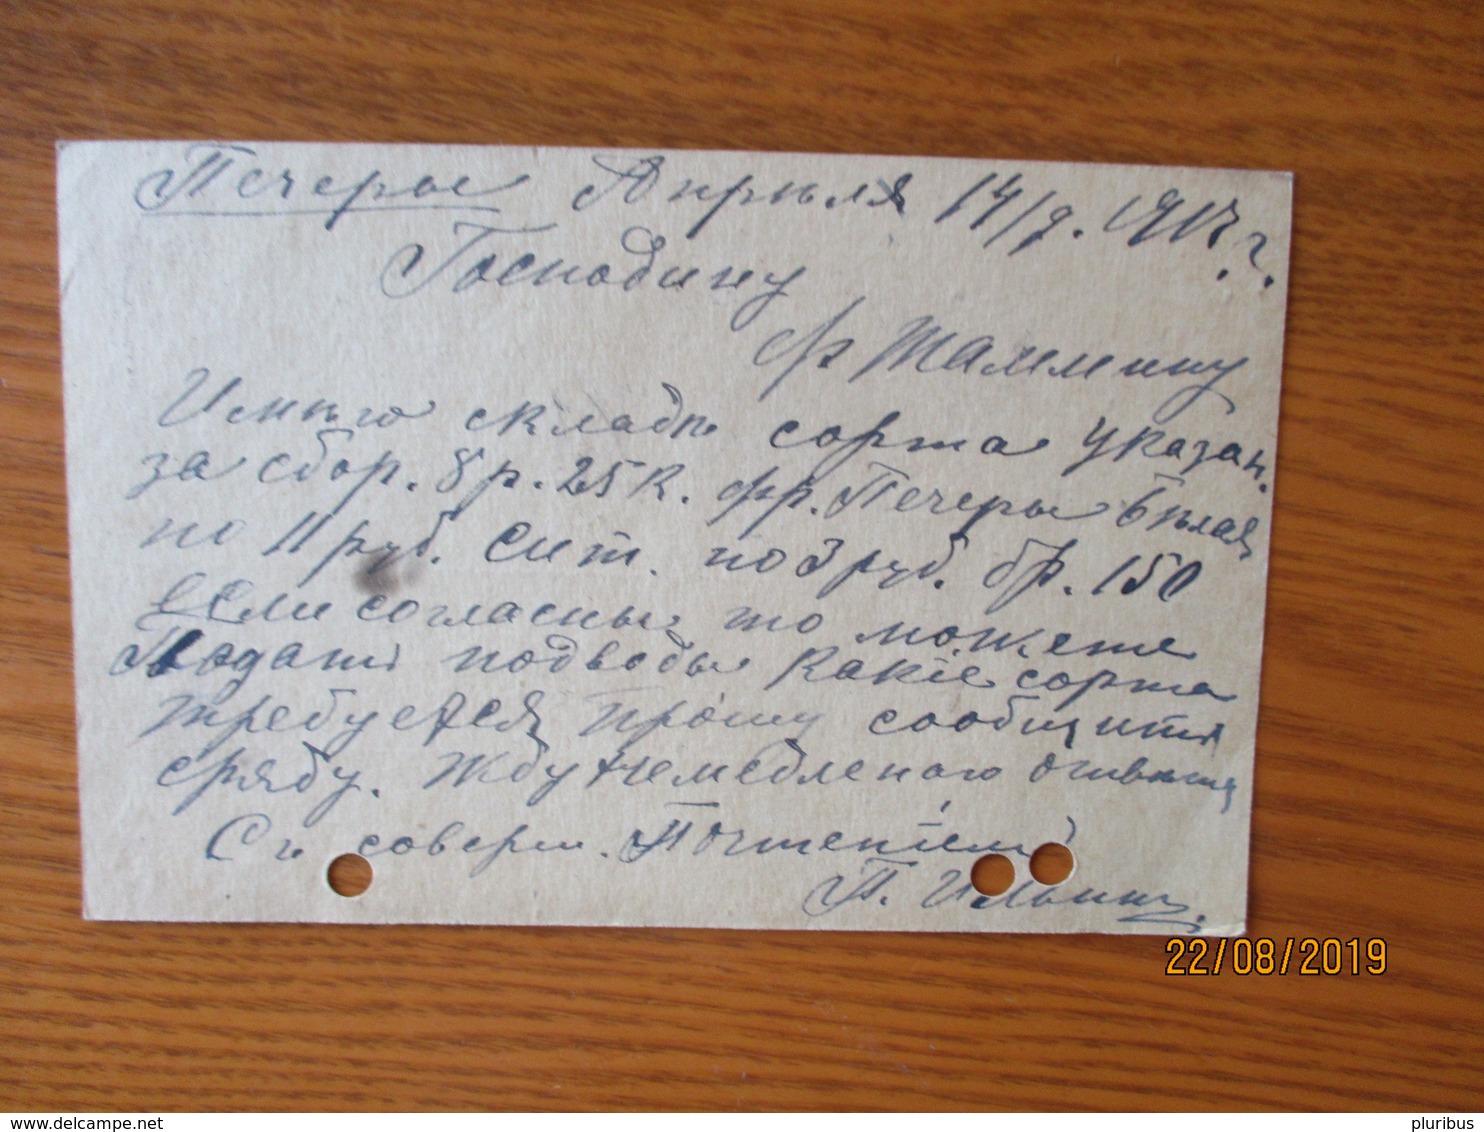 Печеры Апрѣля 14/ 1917 г.
Господину
Фр Таммину
Имѣю складѣ сорта указан.
за сбор. 8 р. 25 к. фр. Печеры бѣлая
по 11 руб. Сит. по 3 руб. 150
Если согласны то можете
Подать подводы какіе сорта
требуется прошу сообщить
сряду. Жду немедленаго отвѣта
Съ соверш. Почтеніем
П. Ильин.
22/08/2019
delcampe.net
pluribus